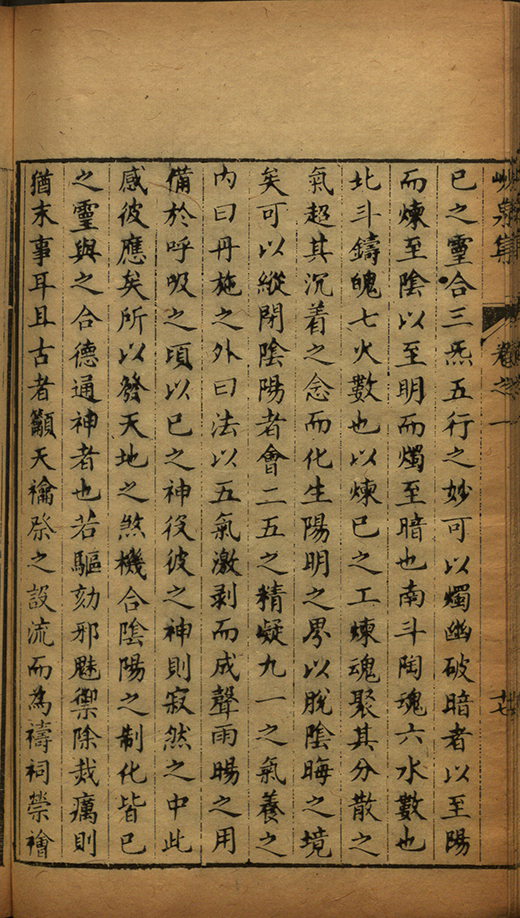 峴泉集 卷之一 十七
已之靈合三炁五行之妙可以燭幽破暗者以至陽
而煉至陰以至明而燭至暗也南斗陶魂六水數也
北斗鑄魄七火數也以煉已之工煉魂聚其分散之
氣超其沉着之念而化生陽明之界以脫陰晦之境
矣可以縱閉陰陽者會二五之精凝九一之氣養之
内曰丹施之外曰法以五氣激剥而成聲雨暘之用
備於呼吸之頃以已之神役彼之神則寂然之中此
感彼應矣所以發天地之煞機合陰陽之制化皆已
之靈與之合德通神者也若驅劾邪魅禦除烖癘則
猶末事耳且古者籲天禬禜之設流而為禱祠禜禬